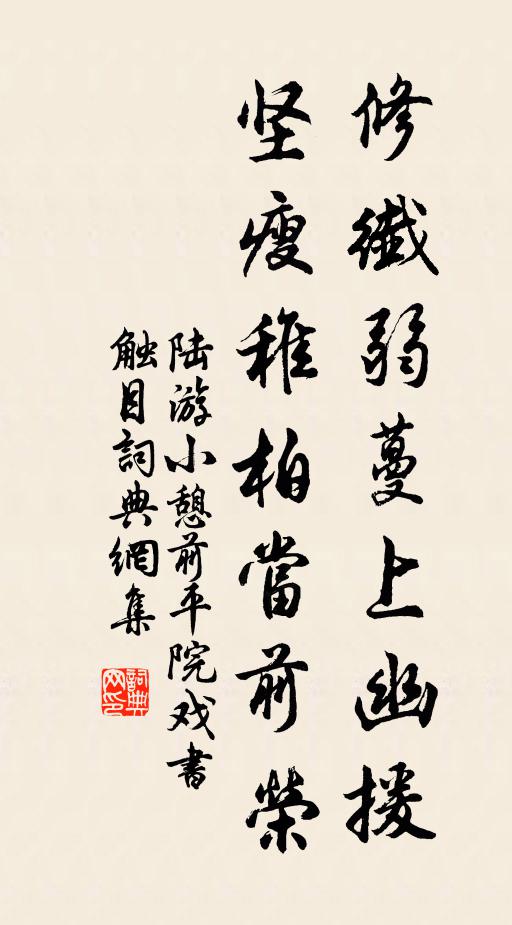 修纖弱蔓上幽援
坚瘦稚柏當前榮
陆游小憩前平院戏書
触目詞典網集
詞典网印